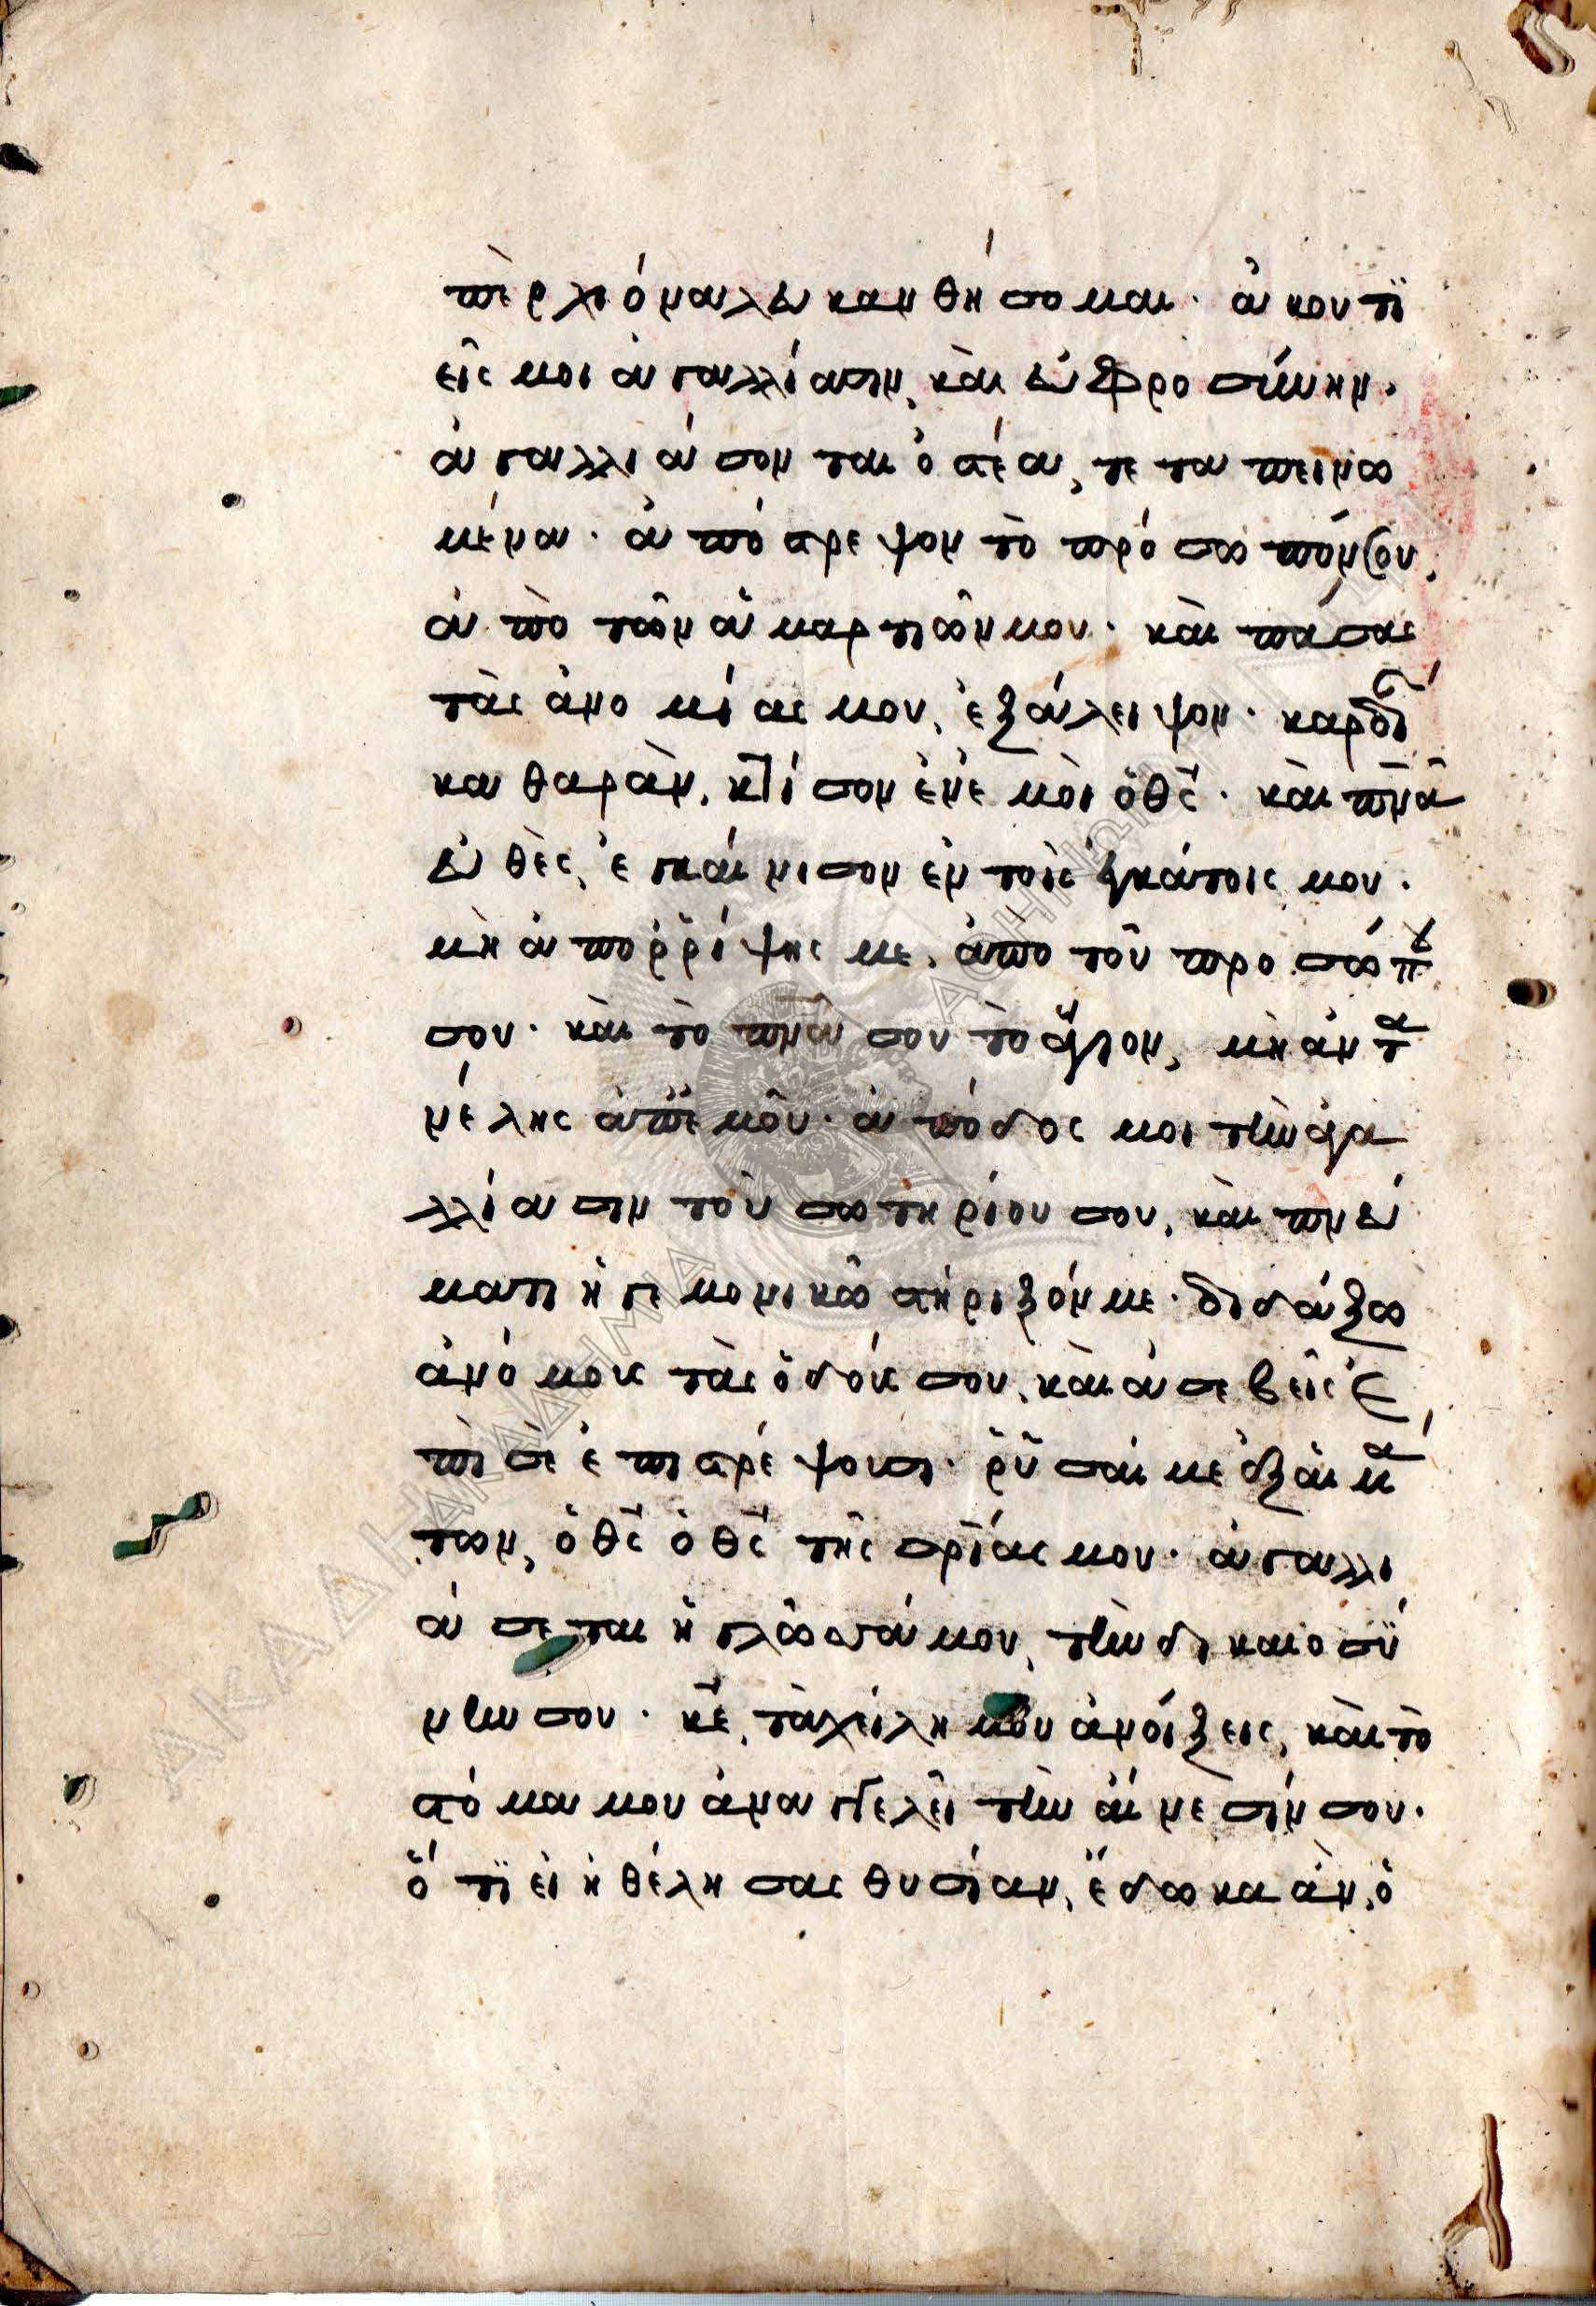 πὲρ χιόνα λευκανθήσομαι· ἀκουτϊ
εῖς μοι ἀγαλλίασιν, καὶ εὐφροσύνην·
ἀγαλλιάσονται ὀστέα, τεταπεινω
μένα· ἀπόστρεψον τὸ πρόσωπόν σου,
ἀπὸ τῶν ἁμαρτιῶν μου· καὶ πάσας
τὰς ἀνομίας μου, ἐξάλειψον· καρδί
καθαρὰν, κτίσον ἐν ἐμοὶ ὁ θς· καὶ πνᾶ
εὐθὲς, ἐγκαίνισον ἐν τοῖς ἐγκάτοις μου·
μὴ ἀπορρίψης με, ἀπὸ τοῦ προσώπ
σου· καὶ τὸ πνᾶ σου τὸ ἅγιον, μὴ ἀντα
νέλης ἀπ' ἐμοῦ· ἀπόδος μοι τὴν ἀγα
λλίασιν τοῦ σωτηρίου σου, καὶ πνεύ
ματι ἡγεμονικῶ στήριξόν με· διδάξω
ἀνόμους τὰς ὁδούς σου, καὶ ἀσεβεῖς ἐ
πὶ σὲ ἐπιστρέψουσι· ῥῦσαί με ἐξ αἱμά
των, ὁ θς ὁ θς τῆς σρίας μου· ἀγαλλι
άσεται ἡ γλῶσσά μου, τὴν δικαιοσύ
νην σου· κε, τὰ χείλη μου ἀνοίξεις, καὶ τὸ
στόμα μου ἀναγγελεῖ τὴν αἴνεσίν σου·
ὅτϊ εἰ ἠθέλησας θυσίαν, ἔδωκα ἂν, ὁ
ΑΚΑΔΗΜΙΑ ΑΘΗΝΩΝ